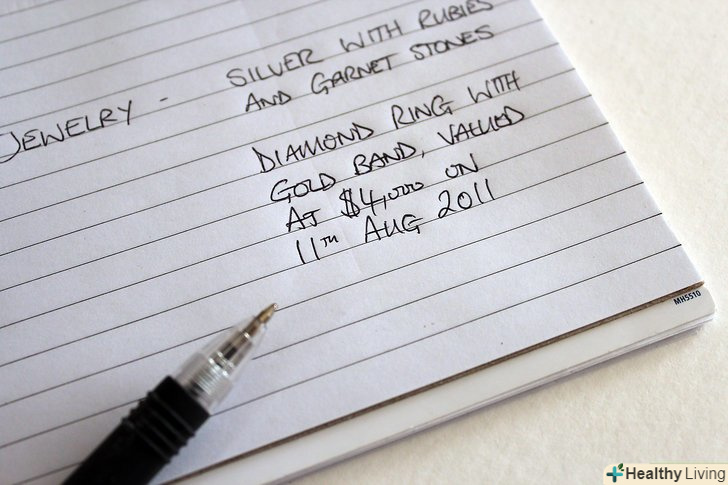 SILVER WITH RUBIES
JEWELRY - AND GARNET STONES
DIAMOND RING WITH
GOLD BAND, VALUED
AT $4,000 ON
11TH AUG 2011
MH5510
Healthy Living